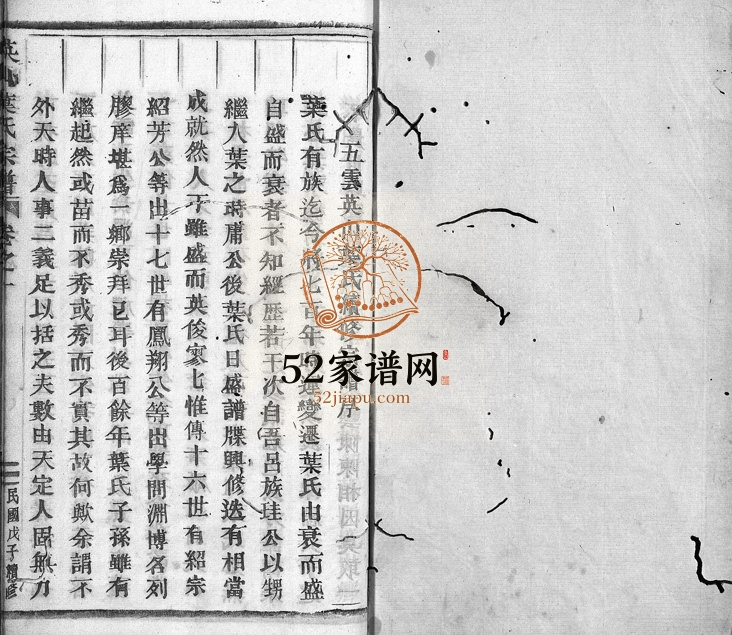 五雲英山葉氏續修宗譜序
葉氏有族迄今將七百年 變遷葉氏由衰而盛
自盛而衰者不知經歷若干次自吾呂族珪公以甥
繼入葉之時庸公後葉氏日盛譜牒興修迭有相當
成就然人丁雖盛而英俊寥七惟傳十六世有紹宗
紹芳公等出十七世有鳳翔公等出學問淵博名列
膠庠堪爲一鄉崇拜已耳後百餘年葉氏子孫雖有
繼起然或苗而不秀或秀而不實其故何歟余謂不
外天時人事二義足以括之夫數由天定人固無力
葉氏宗譜
卷之一
民國戊子續修
52家谱网
52jiapu.com